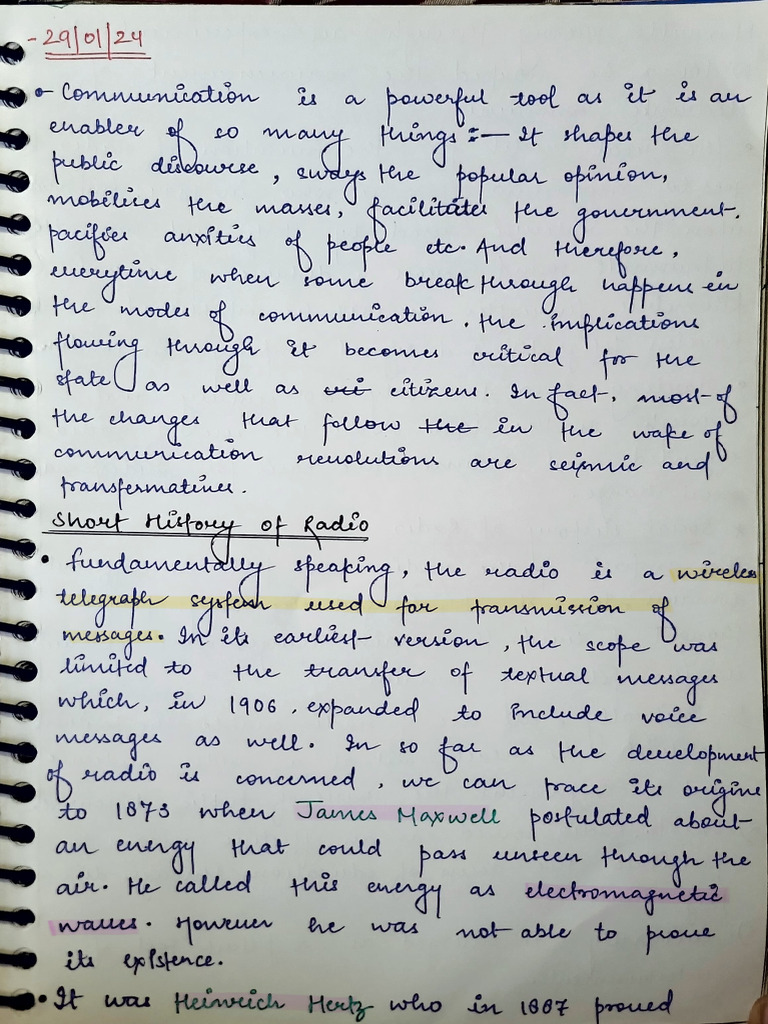 - 29/01/24
Communication is a powerful tool as it is an
enabler of so many things :— It shapes the
public discourse, sways the popular opinion,
mobilises the masses, facilitates the government.
pacifies anxities of people etc. And therefore,
everytime when some break through happens in
the modes of communication, the implications
flowing through it becomes critical for the
state as well as citizens. In fact, most of
the changes that follow the in the wake of
communication revolutions are seismic and
transformatives.
Short History of Radio
• Fundamentally speaking, the radio is a wireless
telegraph system used for transmission of
messages. In its earliest version, the scope was
limited to the transfer of textual messages
which, in 1906, expanded to include voice
messages as well. In so far as the development
of radio is concerned, we can trace its origins
to 1873 when James Maxwell postulated about
an energy that could pass unseen through the
air. He called this energy as electromagnetic
waves. However he was not able to prove
its existence.
• It was Heinrich Hertz who in 1887 proved